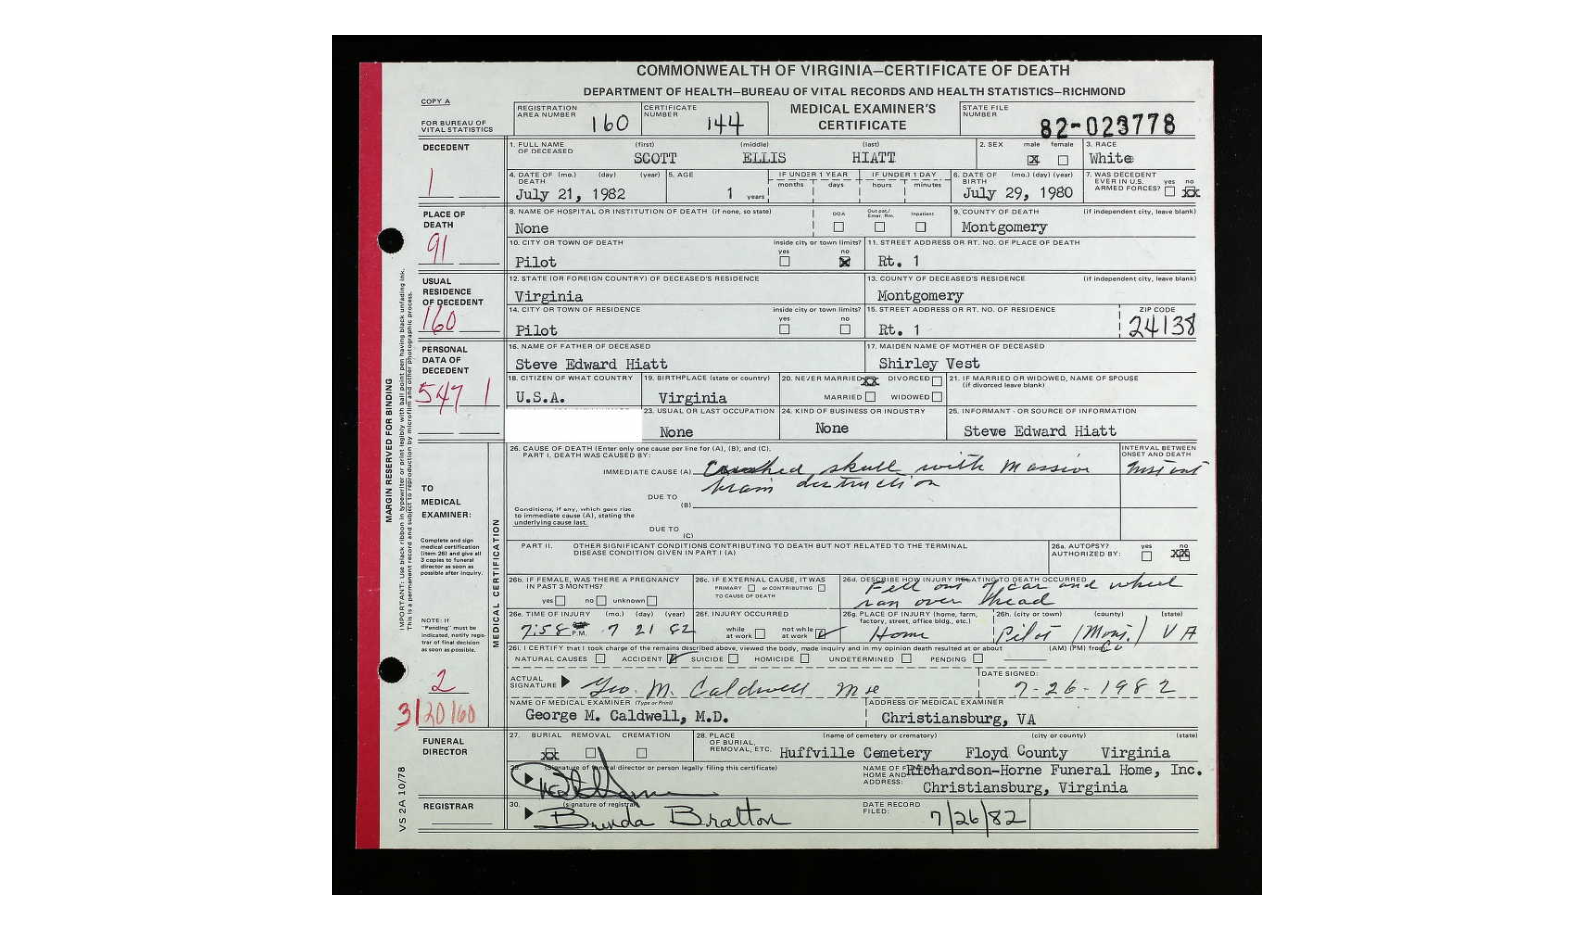 COMMONWEALTH OF VIRGINIA—CERTIFICATE OF DEATH
DEPARTMENT OF HEALTH—BUREAU OF VITAL RECORDS AND HEALTH STATISTICS—RICHMOND
COPY A
FOR BUREAU OF VITAL STATISTICS
REGISTRATION AREA NUMBER 160
CERTIFICATE NUMBER 144
MEDICAL EXAMINER'S CERTIFICATE
STATE FILE NUMBER 82-023778
DECEDENT
1
1. FULL NAME OF DECEASED (first) (middle) (last)
SCOTT ELLIS HIATT
2. SEX male female X
3. RACE White
4. DATE OF DEATH (mo.) (day) (year) July 21, 1982
5. AGE 1 years
IF UNDER 1 YEAR months days
IF UNDER 1 DAY hours minutes
6. DATE OF BIRTH (mo.) (day) (year) July 29, 1980
7. WAS DECEDENT EVER IN U.S. ARMED FORCES? yes no XX
PLACE OF DEATH
91
8. NAME OF HOSPITAL OR INSTITUTION OF DEATH (if none, so state)
None
DOA Out pat/ Emer. Rm. Inpatient
9. COUNTY OF DEATH (if independent city, leave blank)
Montgomery
10. CITY OR TOWN OF DEATH inside city or town limits? yes no X
Pilot
11. STREET ADDRESS OR RT. NO. OF PLACE OF DEATH
Rt. 1
USUAL RESIDENCE OF DECEDENT
160
12. STATE (OR FOREIGN COUNTRY) OF DECEASED'S RESIDENCE
Virginia
13. COUNTY OF DECEASED'S RESIDENCE (if independent city, leave blank)
Montgomery
14. CITY OR TOWN OF RESIDENCE inside city or town limits? yes no
Pilot
15. STREET ADDRESS OR RT. NO. OF RESIDENCE
Rt. 1
ZIP CODE
24138
PERSONAL DATA OF DECEDENT
547 1
16. NAME OF FATHER OF DECEASED
Steve Edward Hiatt
17. MAIDEN NAME OF MOTHER OF DECEASED
Shirley Vest
18. CITIZEN OF WHAT COUNTRY
U.S.A.
19. BIRTHPLACE (state or country)
Virginia
20. NEVER MARRIED XX DIVORCED
MARRIED WIDOWED
21. IF MARRIED OR WIDOWED, NAME OF SPOUSE
(if divorced leave blank)
23. USUAL OR LAST OCCUPATION
None
24. KIND OF BUSINESS OR INDUSTRY
None
25. INFORMANT - OR SOURCE OF INFORMATION
Steve Edward Hiatt
MARGIN RESERVED FOR BINDING
IMPORTANT: Use black ribbon in typewriter or print legibly with ball point pen having black unfading ink.
This is a permanent record and subject to reproduction by microfilm and other photographic process.
TO MEDICAL EXAMINER:
Complete and sign medical certification (item 26) and give all 3 copies to funeral director as soon as possible after inquiry.
NOTE: If "Pending" must be indicated, notify registrar of final decision as soon as possible.
MEDICAL CERTIFICATION
26. CAUSE OF DEATH (Enter only one cause per line for (A), (B), and (C).
PART I. DEATH WAS CAUSED BY:
INTERVAL BETWEEN ONSET AND DEATH
IMMEDIATE CAUSE (A) Crushed skull with massive Instant
brain destruction
DUE TO (B)
Conditions, if any, which gave rise to immediate cause (A), stating the underlying cause last.
DUE TO (C)
PART II. OTHER SIGNIFICANT CONDITIONS CONTRIBUTING TO DEATH BUT NOT RELATED TO THE TERMINAL
DISEASE CONDITION GIVEN IN PART I (A)
26a. AUTOPSY? AUTHORIZED BY: yes no XX
26b. IF FEMALE, WAS THERE A PREGNANCY IN PAST 3 MONTHS?
yes no unknown
26c. IF EXTERNAL CAUSE, IT WAS
PRIMARY or CONTRIBUTING
TO CAUSE OF DEATH
26d. DESCRIBE HOW INJURY RELATING TO DEATH OCCURRED
Fell out of car and wheel
ran over head
26e. TIME OF INJURY (mo.) (day) (year)
7:58 P.M. 7 21 82
26f. INJURY OCCURRED
while at work not while at work
26g. PLACE OF INJURY (home, farm, factory, street, office bldg., etc.)
Home
26h. (city or town) (county) (state)
Pilot (Mont. Co VA
26i. I CERTIFY that I took charge of the remains described above, viewed the body, made inquiry and in my opinion death resulted at or about (AM) (PM) from:
NATURAL CAUSES ACCIDENT SUICIDE HOMICIDE UNDETERMINED PENDING
2
3/20/60
ACTUAL SIGNATURE Geo. M. Caldwell ME
DATE SIGNED:
7-26-1982
NAME OF MEDICAL EXAMINER (Type or Print)
George M. Caldwell, M.D.
ADDRESS OF MEDICAL EXAMINER
Christiansburg, VA
FUNERAL DIRECTOR
27. BURIAL REMOVAL CREMATION
XX
28. PLACE OF BURIAL, REMOVAL, ETC. (name of cemetery or crematory) (city or county) (state)
Huffville Cemetery Floyd County Virginia
29. (signature of funeral director or person legally filing this certificate)
NAME OF FUNERAL HOME AND ADDRESS: Richardson-Horne Funeral Home, Inc.
Christiansburg, Virginia
REGISTRAR
30. (signature of registrar)
Brenda Bratton
DATE RECORD FILED: 7/26/82
VS 2A 10/78